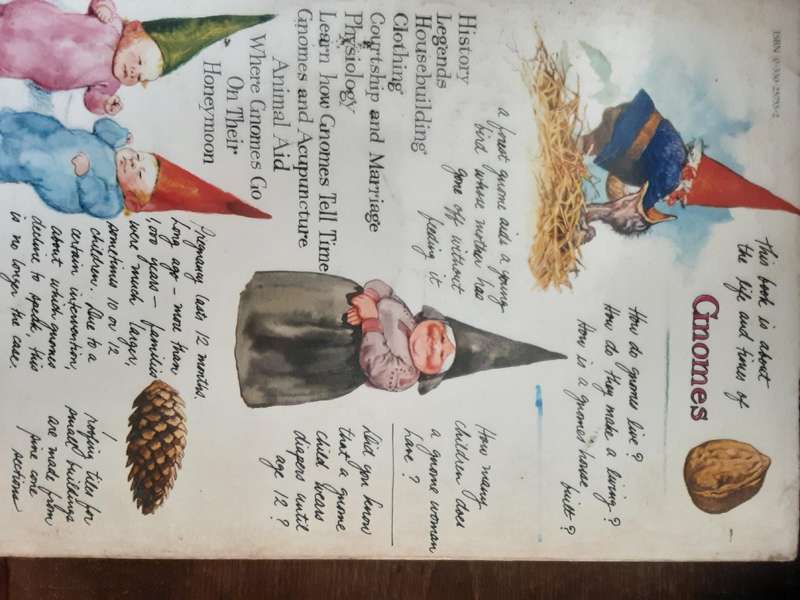 ISBN 0-330-25755-2
This book is about
the life and times of
Gnomes
How do gnomes live?
How do they make a living?
How is a gnomes house
built?
a forest gnome aids a young
bird whose mother has
gone off without
feeding it
History
Legends
Housebuilding
Clothing
Courtship and Marriage
Physiology
Learn how Gnomes Tell Time
Gnomes and Acupuncture
Animal Aid
Where Gnomes Go
On Their
Honeymoon
How many
children does
a gnome woman
have?
Did you know
that a gnome
child wears
diapers until
age 12?
Pregnancy lasts 12 months
Long ago - more than
1,000 years - families
were much larger,
sometimes 10 or 12
children. Due to a
certain intervention,
about which gnomes
decline to speak, this
is no longer the case.
roofing tiles for
small buildings
are made from
pine cone
sections